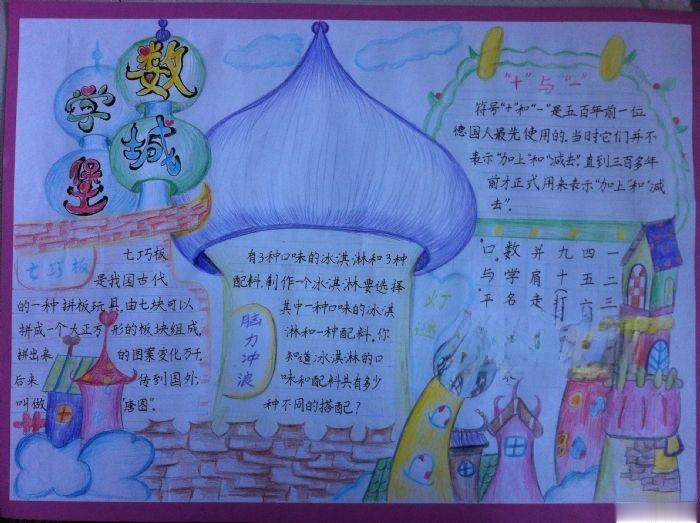 数学城堡
七巧板
七巧板
是我国古代
的一种拼板玩具,由七块可以
拼成一个大正方形的板块组成,
拼出来的图案变化万千,
后来传到国外,
叫做“唐图”。
有3种口味的冰淇淋和3种
配料,制作一个冰淇淋要选择
其中一种口味的冰淇
淋和一种配料。你
知道冰淇淋的口
味和配料共有多少
种不同的搭配?
脑力冲浪
“+”与“-”
符号“+”和“-”是五百年前一位
德国人最先使用的。当时它们并不
表示“加上”和“减去”。直到三百多年
前才正式用来表示“加上”和“减
去”。
灯谜
一二三
四五六
九十(打
并肩走
数学名
口。与平